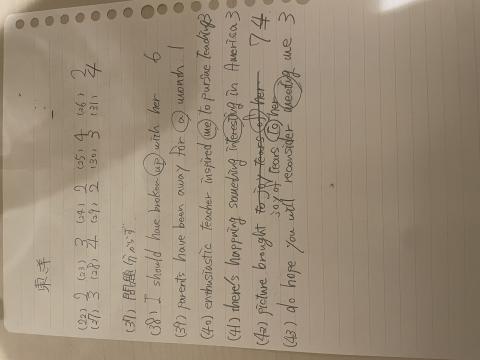 東洋
(22) 2 (23) 3 (24) 2 (25) 4 (26) 2
(27) 3 (28) 4 (29) 2 (30) 3 (31) 4
(37) 問題分からず
(38) I should have broken up with her 6
(39) parents have been away for a month 1
(40) enthusiastic teacher inspired me to pursue teaching 3
(41) there's happning something interesting in America 3
(42) picture brought to joy tears of her 7 4
joy of tears to her
(43) do hope you will reconsider meeting me 3